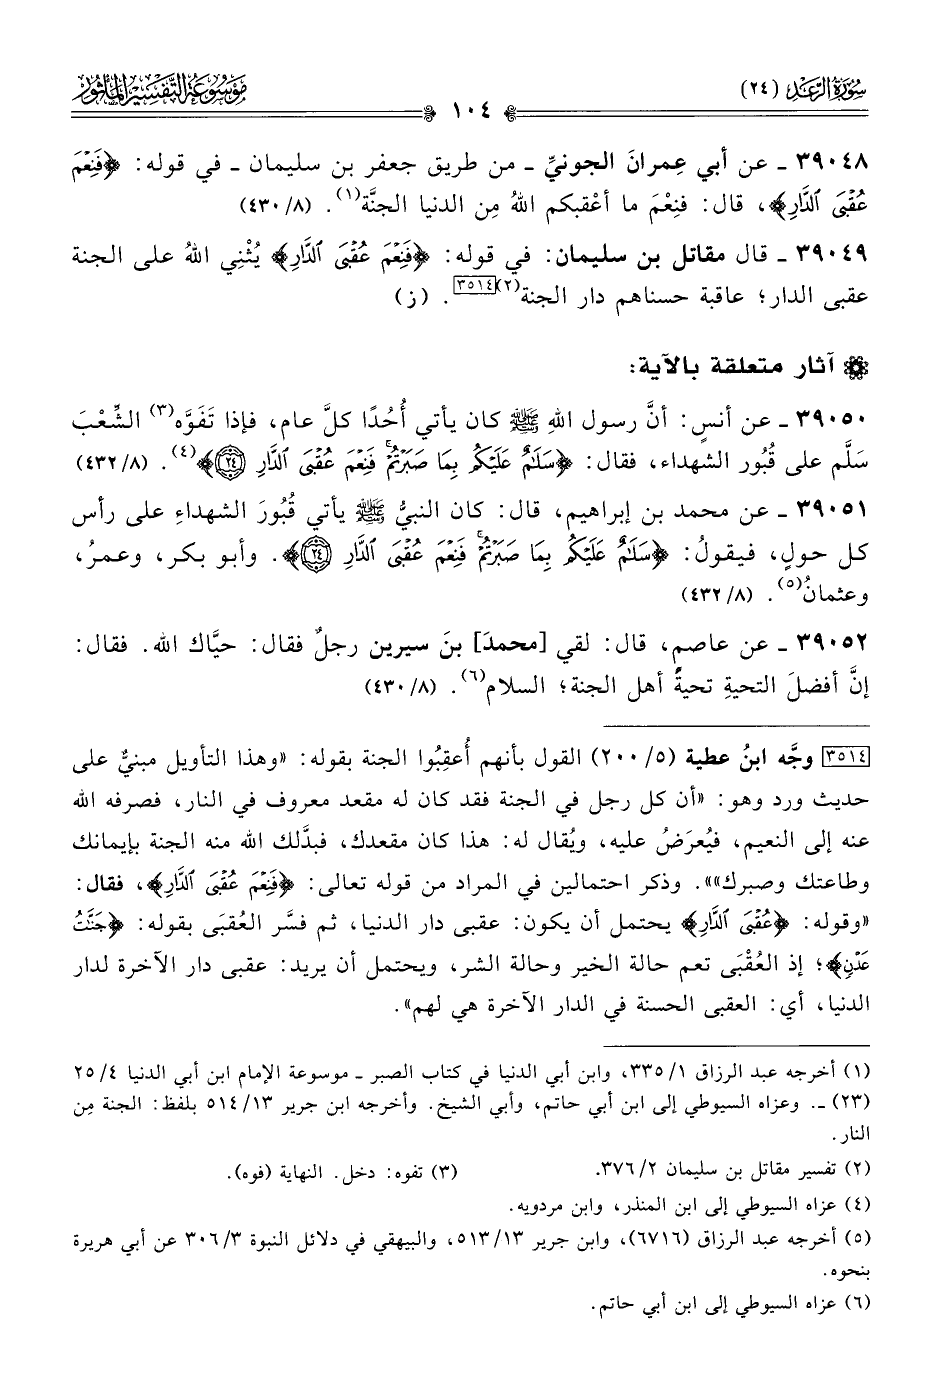 سُورَةُ الرَّعْدِ (٢٤)
١٠٤
مَوْسُوعَةُ التَّفْسِيرِ المَأْثُورِ
٣٩٠٤٨ ـ عن أبي عِمرانَ الجونيِّ ـ من طريق جعفر بن سليمان ـ في قوله: ﴿فَنِعْمَ
عُقْبَى ٱلدَّارِ﴾، قال: فنِعْمَ ما أعْقبكم اللهُ مِن الدنيا الجنَّة(١). (٨/ ٤٣٠)
٣٩٠٤٩ ـ قال مقاتل بن سليمان: في قوله: ﴿فَنِعْمَ عُقْبَى ٱلدَّارِ﴾ يُثْنِي اللهُ على الجنة
عقبى الدار؛ عاقبة حسناهم دار الجنة(٢)[٣٥١٤]. (ز)
آثار متعلقة بالآية:
٣٩٠٥٠ ـ عن أنسٍ: أنَّ رسول اللهِ ﷺ كان يأتي أُحُدًا كلَّ عام، فإذا تَفَوَّه(٣) الشِّعْبَ
سَلَّم على قُبُور الشهداء، فقال: ﴿سَلَٰمٌ عَلَيْكُم بِمَا صَبَرْتُمْ ۚ فَنِعْمَ عُقْبَى ٱلدَّارِ ٢٤﴾(٤). (٨/ ٤٣٢)
٣٩٠٥١ ـ عن محمد بن إبراهيم، قال: كان النبيُّ ﷺ يأتي قُبُورَ الشهداءِ على رأس
كل حولٍ، فيقولُ: ﴿سَلَٰمٌ عَلَيْكُم بِمَا صَبَرْتُمْ ۚ فَنِعْمَ عُقْبَى ٱلدَّارِ ٢٤﴾. وأبو بكر، وعمرُ،
وعثمانُ(٥). (٨/ ٤٣٢)
٣٩٠٥٢ ـ عن عاصمٍ، قال: لقي [محمدَ] بنَ سيرين رجلٌ فقال: حيَّاك الله. فقال:
إنَّ أفضلَ التحيةِ تحيةُ أهل الجنة؛ السلام(٦). (٨/ ٤٣٠)
[٣٥١٤] وجَّه ابنُ عطية (٥/ ٢٠٠) القول بأنهم أُعقِبُوا الجنة بقوله: «وهذا التأويل مبنيٌّ على
حديث ورد وهو: «أن كل رجل في الجنة فقد كان له مقعد معروف في النار، فصرفه الله
عنه إلى النعيم، فيُعرَضُ عليه، ويُقال له: هذا كان مقعدك، فبدَّلك الله منه الجنة بإيمانك
وطاعتك وصبرك»». وذكر احتمالين في المراد من قوله تعالى: ﴿فَنِعْمَ عُقْبَى ٱلدَّارِ﴾، فقال:
«وقوله: ﴿عُقْبَى ٱلدَّارِ﴾ يحتمل أن يكون: عقبى دار الدنيا، ثم فسَّر العُقبَى بقوله: ﴿جَنَّٰتُ
عَدْنٍ﴾؛ إذ العُقْبَى تعم حالة الخير وحالة الشر، ويحتمل أن يريد: عقبى دار الآخرة لدار
الدنيا، أي: العقبى الحسنة في الدار الآخرة هي لهم».
(١) أخرجه عبد الرزاق ١/ ٣٣٥، وابن أبي الدنيا في كتاب الصبر ـ موسوعة الإمام ابن أبي الدنيا ٤/ ٢٥
(٢٣) ـ. وعزاه السيوطي إلى ابن أبي حاتم، وأبي الشيخ. وأخرجه ابن جرير ١٣/ ٥١٤ بلفظ: الجنة مِن
النار.
(٢) تفسير مقاتل بن سليمان ٢/ ٣٧٦. (٣) تفوه: دخل. النهاية (فوه).
(٤) عزاه السيوطي إلى ابن المنذر، وابن مردويه.
(٥) أخرجه عبد الرزاق (٦٧١٦)، وابن جرير ١٣/ ٥١٣، والبيهقي في دلائل النبوة ٣/ ٣٠٦ عن أبي هريرة
بنحوه.
(٦) عزاه السيوطي إلى ابن أبي حاتم.